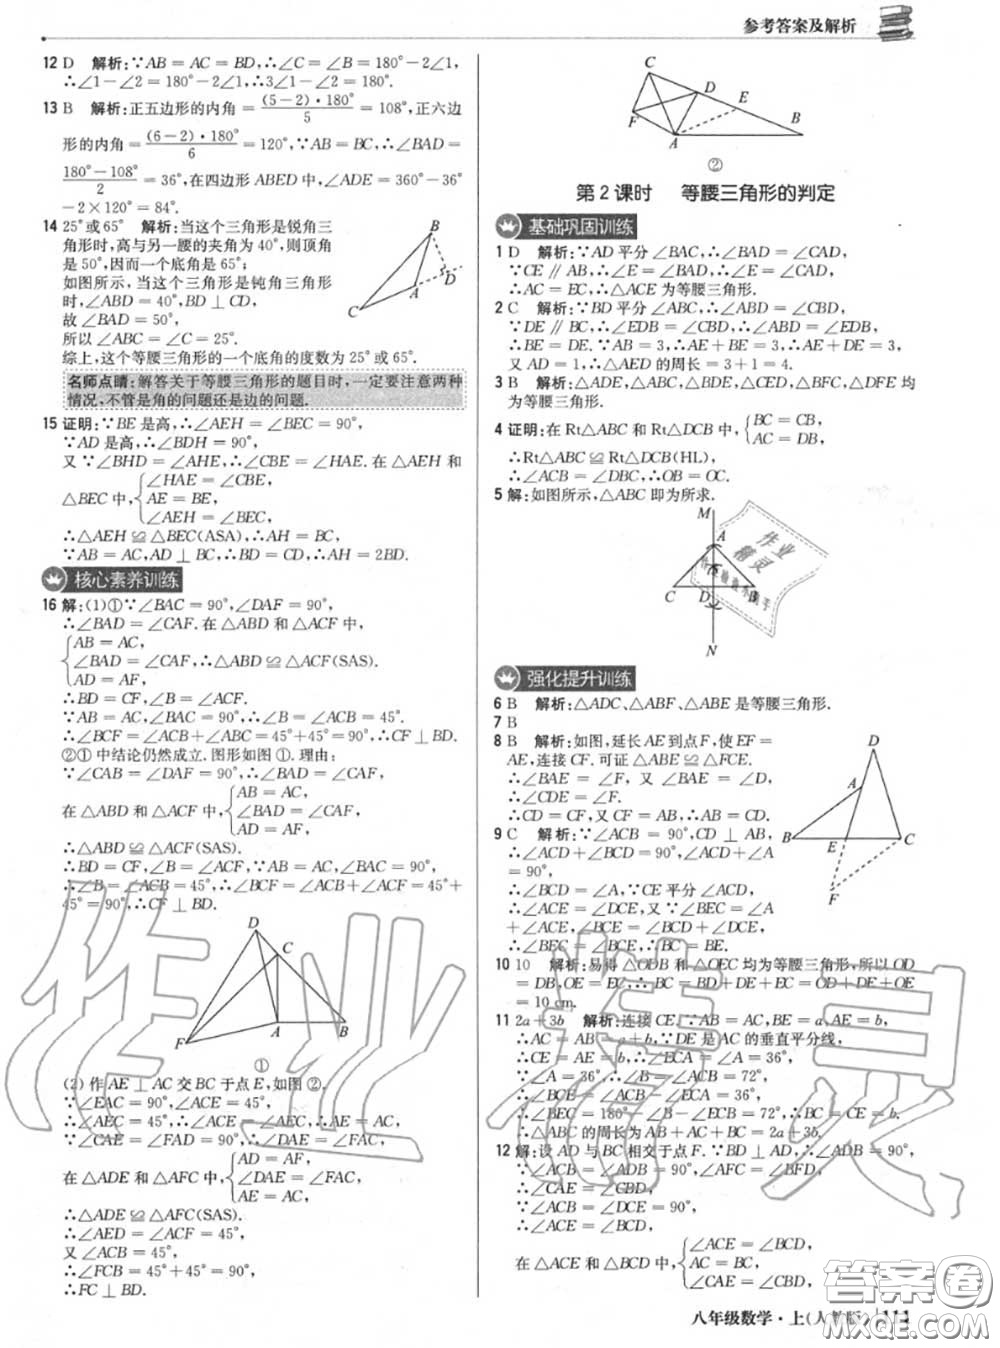 参考答案及解析
12 D 解析:∵AB=AC=BD,∴∠C=∠B=180°-2∠1,
∴∠1-∠2=180°-2∠1,∴3∠1-∠2=180°.
13 B 解析:正五边形的内角=(5-2)·180°/5=108°,正六边
形的内角=(6-2)·180°/6=120°,∵AB=BC,∴∠BAD=
180°-108°/2=36°,在四边形ABED中,∠ADE=360°-36°
-2×120°=84°.
14 25°或65° 解析:当这个三角形是锐角三
角形时,高与另一腰的夹角为40°,则顶角
是50°,因而一个底角是65°;
如图所示,当这个三角形是钝角三角形
时,∠ABD=40°,BD⊥CD,
故∠BAD=50°,
所以∠ABC=∠C=25°.
综上,这个等腰三角形的一个底角的度数为25°或65°.
B
D
A
C
名师点睛:解答关于等腰三角形的题目时,一定要注意两种
情况,不管是角的问题还是边的问题.
15 证明:∵BE是高,∴∠AEH=∠BEC=90°.
∵AD是高,∴∠BDH=90°,
又∵∠BHD=∠AHE,∴∠CBE=∠HAE.在△AEH和
△BEC中,{∠HAE=∠CBE,
AE=BE,
∠AEH=∠BEC,
∴△AEH≌△BEC(ASA),∴AH=BC.
∵AB=AC,AD⊥BC,∴BD=CD,∴AH=2BD.
核心素养训练
16 解:(1)①∵∠BAC=90°,∠DAF=90°,
∴∠BAD=∠CAF.在△ABD和△ACF中,
{AB=AC,
∠BAD=∠CAF,∴△ABD≌△ACF(SAS).
AD=AF,
∴BD=CF,∠B=∠ACF.
∵AB=AC,∠BAC=90°,∴∠B=∠ACB=45°.
∴∠BCF=∠ACB+∠ABC=45°+45°=90°.∴CF⊥BD.
②①中结论仍然成立.图形如图①.理由:
∵∠CAB=∠DAF=90°,∴∠BAD=∠CAF,
在△ABD和△ACF中,{AB=AC,
∠BAD=∠CAF,
AD=AF,
∴△ABD≌△ACF(SAS).
∴BD=CF,∠B=∠ACF,∵AB=AC,∠BAC=90°,
∴∠B=∠ACB=45°,∴∠BCF=∠ACB+∠ACF=45°+
45°=90°,∴CF⊥BD.
D
C
A
B
F
①
(2)作AE⊥AC交BC于点E,如图②.
∵∠EAC=90°,∠ACE=45°,
∴∠AEC=45°,∴∠ACE=∠AEC,∴AE=AC,
∵∠CAE=∠FAD=90°,∴∠DAE=∠FAC,
在△ADE和△AFC中,{AD=AF,
∠DAE=∠FAC,
AE=AC,
∴△ADE≌△AFC(SAS).
∴∠AED=∠ACF=45°,
又∠ACB=45°,
∴∠FCB=45°+45°=90°,
∴FC⊥BD.
C
D
E
B
F
A
②
第2课时 等腰三角形的判定
基础巩固训练
1 D 解析:∵AD平分∠BAC,∴∠BAD=∠CAD,
∵CE∥AB,∴∠E=∠BAD,∴∠E=∠CAD,
∴AC=EC,∴△ACE为等腰三角形.
2 C 解析:∵BD平分∠ABC,∴∠ABD=∠CBD,
∵DE∥BC,∴∠EDB=∠CBD,∴∠ABD=∠EDB,
∴BE=DE.∵AB=3,∴AE+BE=3,∴AE+DE=3,
又AD=1,∴△AED的周长=3+1=4.
3 B 解析:△ADE,△ABC,△BDE,△CED,△BFC,△DFE均
为等腰三角形.
4 证明:在Rt△ABC和Rt△DCB中,{BC=CB,
AC=DB,
∴Rt△ABC≌Rt△DCB(HL),
∴∠ACB=∠DBC,∴OB=OC.
5 解:如图所示,△ABC即为所求.
M
A
C D B
N
强化提升训练
6 B 解析:△ADC、△ABF、△ABE是等腰三角形.
7 B
8 B 解析:如图,延长AE到点F,使EF=
AE,连接CF.可证△ABE≌△FCE.
∴∠BAE=∠F,又∠BAE=∠D,
∴∠CDE=∠F.
∴CD=CF,又CF=AB,∴AB=CD.
9 C 解析:∵∠ACB=90°,CD⊥AB,
∴∠ACD+∠BCD=90°,∠ACD+∠A
=90°,
∴∠BCD=∠A,∵CE平分∠ACD,
∴∠ACE=∠DCE,又∵∠BEC=∠A
+∠ACE,∠BCE=∠BCD+∠DCE,
∴∠BEC=∠BCE,∴BC=BE.
D
A
B
E
C
F
10 10 解析:易得△ODB和△OEC均为等腰三角形,所以OD
=DB,OE=EC,∴BC=BD+DE+EC=OD+DE+OE
=10 cm.
11 2a+3b 解析:连接CE,∵AB=AC,BE=a,AE=b,
∴AC=AB=a+b.∵DE是AC的垂直平分线,
∴CE=AE=b,∴∠ECA=∠A=36°,
∵∠A=36°,∴∠B=∠ACB=72°,
∴∠BCE=∠ACB-∠ECA=36°,
∴∠BEC=180°-∠B-∠ECB=72°,∴BC=CE=b.
∴△ABC的周长为AB+AC+BC=2a+3b.
12 解:设AD与BC相交于点F.∵BD⊥AD,∴∠ADB=90°,
∵∠ACB=∠ADB=90°,∠AFC=∠BFD,
∴∠CAE=∠CBD,
∵∠ACE=∠BCD,
∴∠ACE=∠BCD,
在△ACE和△BCD中,{∠ACE=∠BCD,
AC=BC,
∠CAE=∠CBD,
八年级数学·上(人教版) 111
作业精灵
答案圈
MXQE.COM